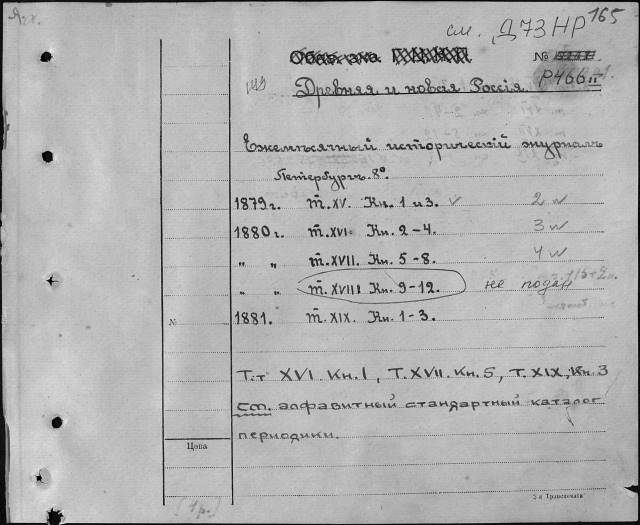 см. Д73НР 165
№
Р466 II
Древняя и новая Россія.
Ежемѣсячный историческій журналъ
Петербургъ. 8º
1879 г. т. XV. Кн. 1 и 3. √ 2 w
1880 г. т. XVI. Кн. 2–4. 3 w
„ „ т. XVII. Кн. 5–8. 4 w
„ „ т. XVIII Кн. 9–12. не подан
№ 1881. т. XIX. Кн. 1–3.
Т.т XVI. Кн. 1, Т. XVII. Кн. 5, Т. XIX, Кн. 3
См. алфавитный стандартный каталог
периодики.
Цена
(1р.)